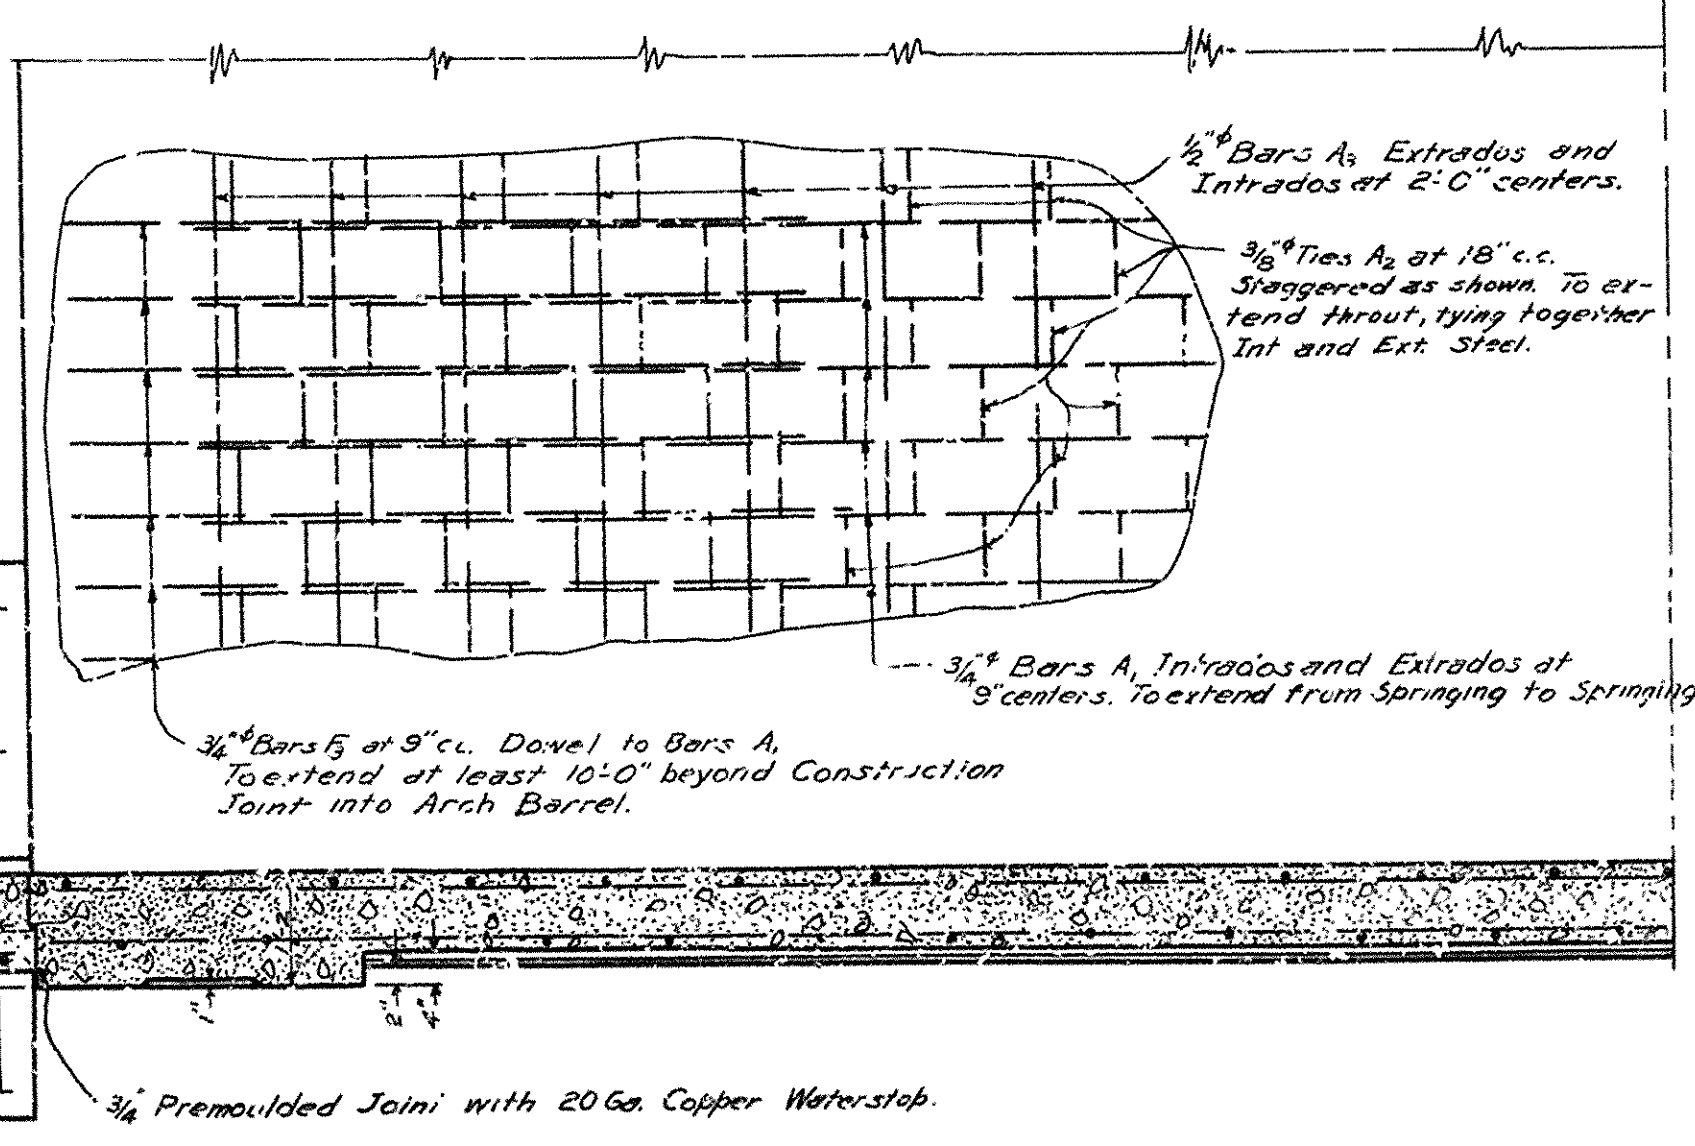 ½"ϕ Bars A3 Extrados and
Intrados at 2'-0" centers.
3/8"ϕ Ties A2 at 18" c.c.
Staggered as shown. To ex-
tend throut, tying together
Int and Ext. Steel.
3/4"ϕ Bars A, Intrados and Extrados at
9" centers. To extend from Springing to Springing
3/4"ϕ Bars F3 at 9" c.c. Dowel to Bars A,
To extend at least 10'-0" beyond Construction
Joint into Arch Barrel.
1"
2"
4"
3/4" Premoulded Joint with 20 Ga. Copper Waterstop.